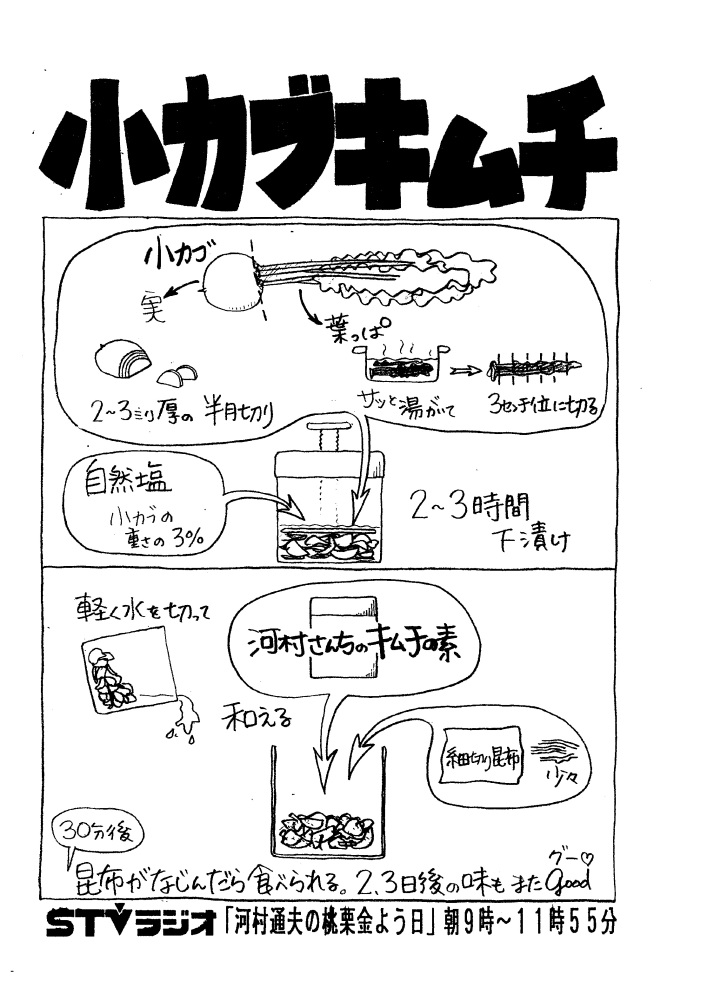 小カブキムチ
小カブ
実
葉っぱ
2〜3ミリ厚の 半月切り
サッと湯がいて
3センチ位に切る
自然塩
小カブの
重さの 3%
2〜3時間
下漬け
軽く水を切って
河村さんちのキムチの素
和える
細切り昆布
少々
30分後
グー♡
昆布がなじんだら食べられる。2、3日後の味もまたGood
STVラジオ「河村通夫の桃栗金よう日」朝9時〜11時55分